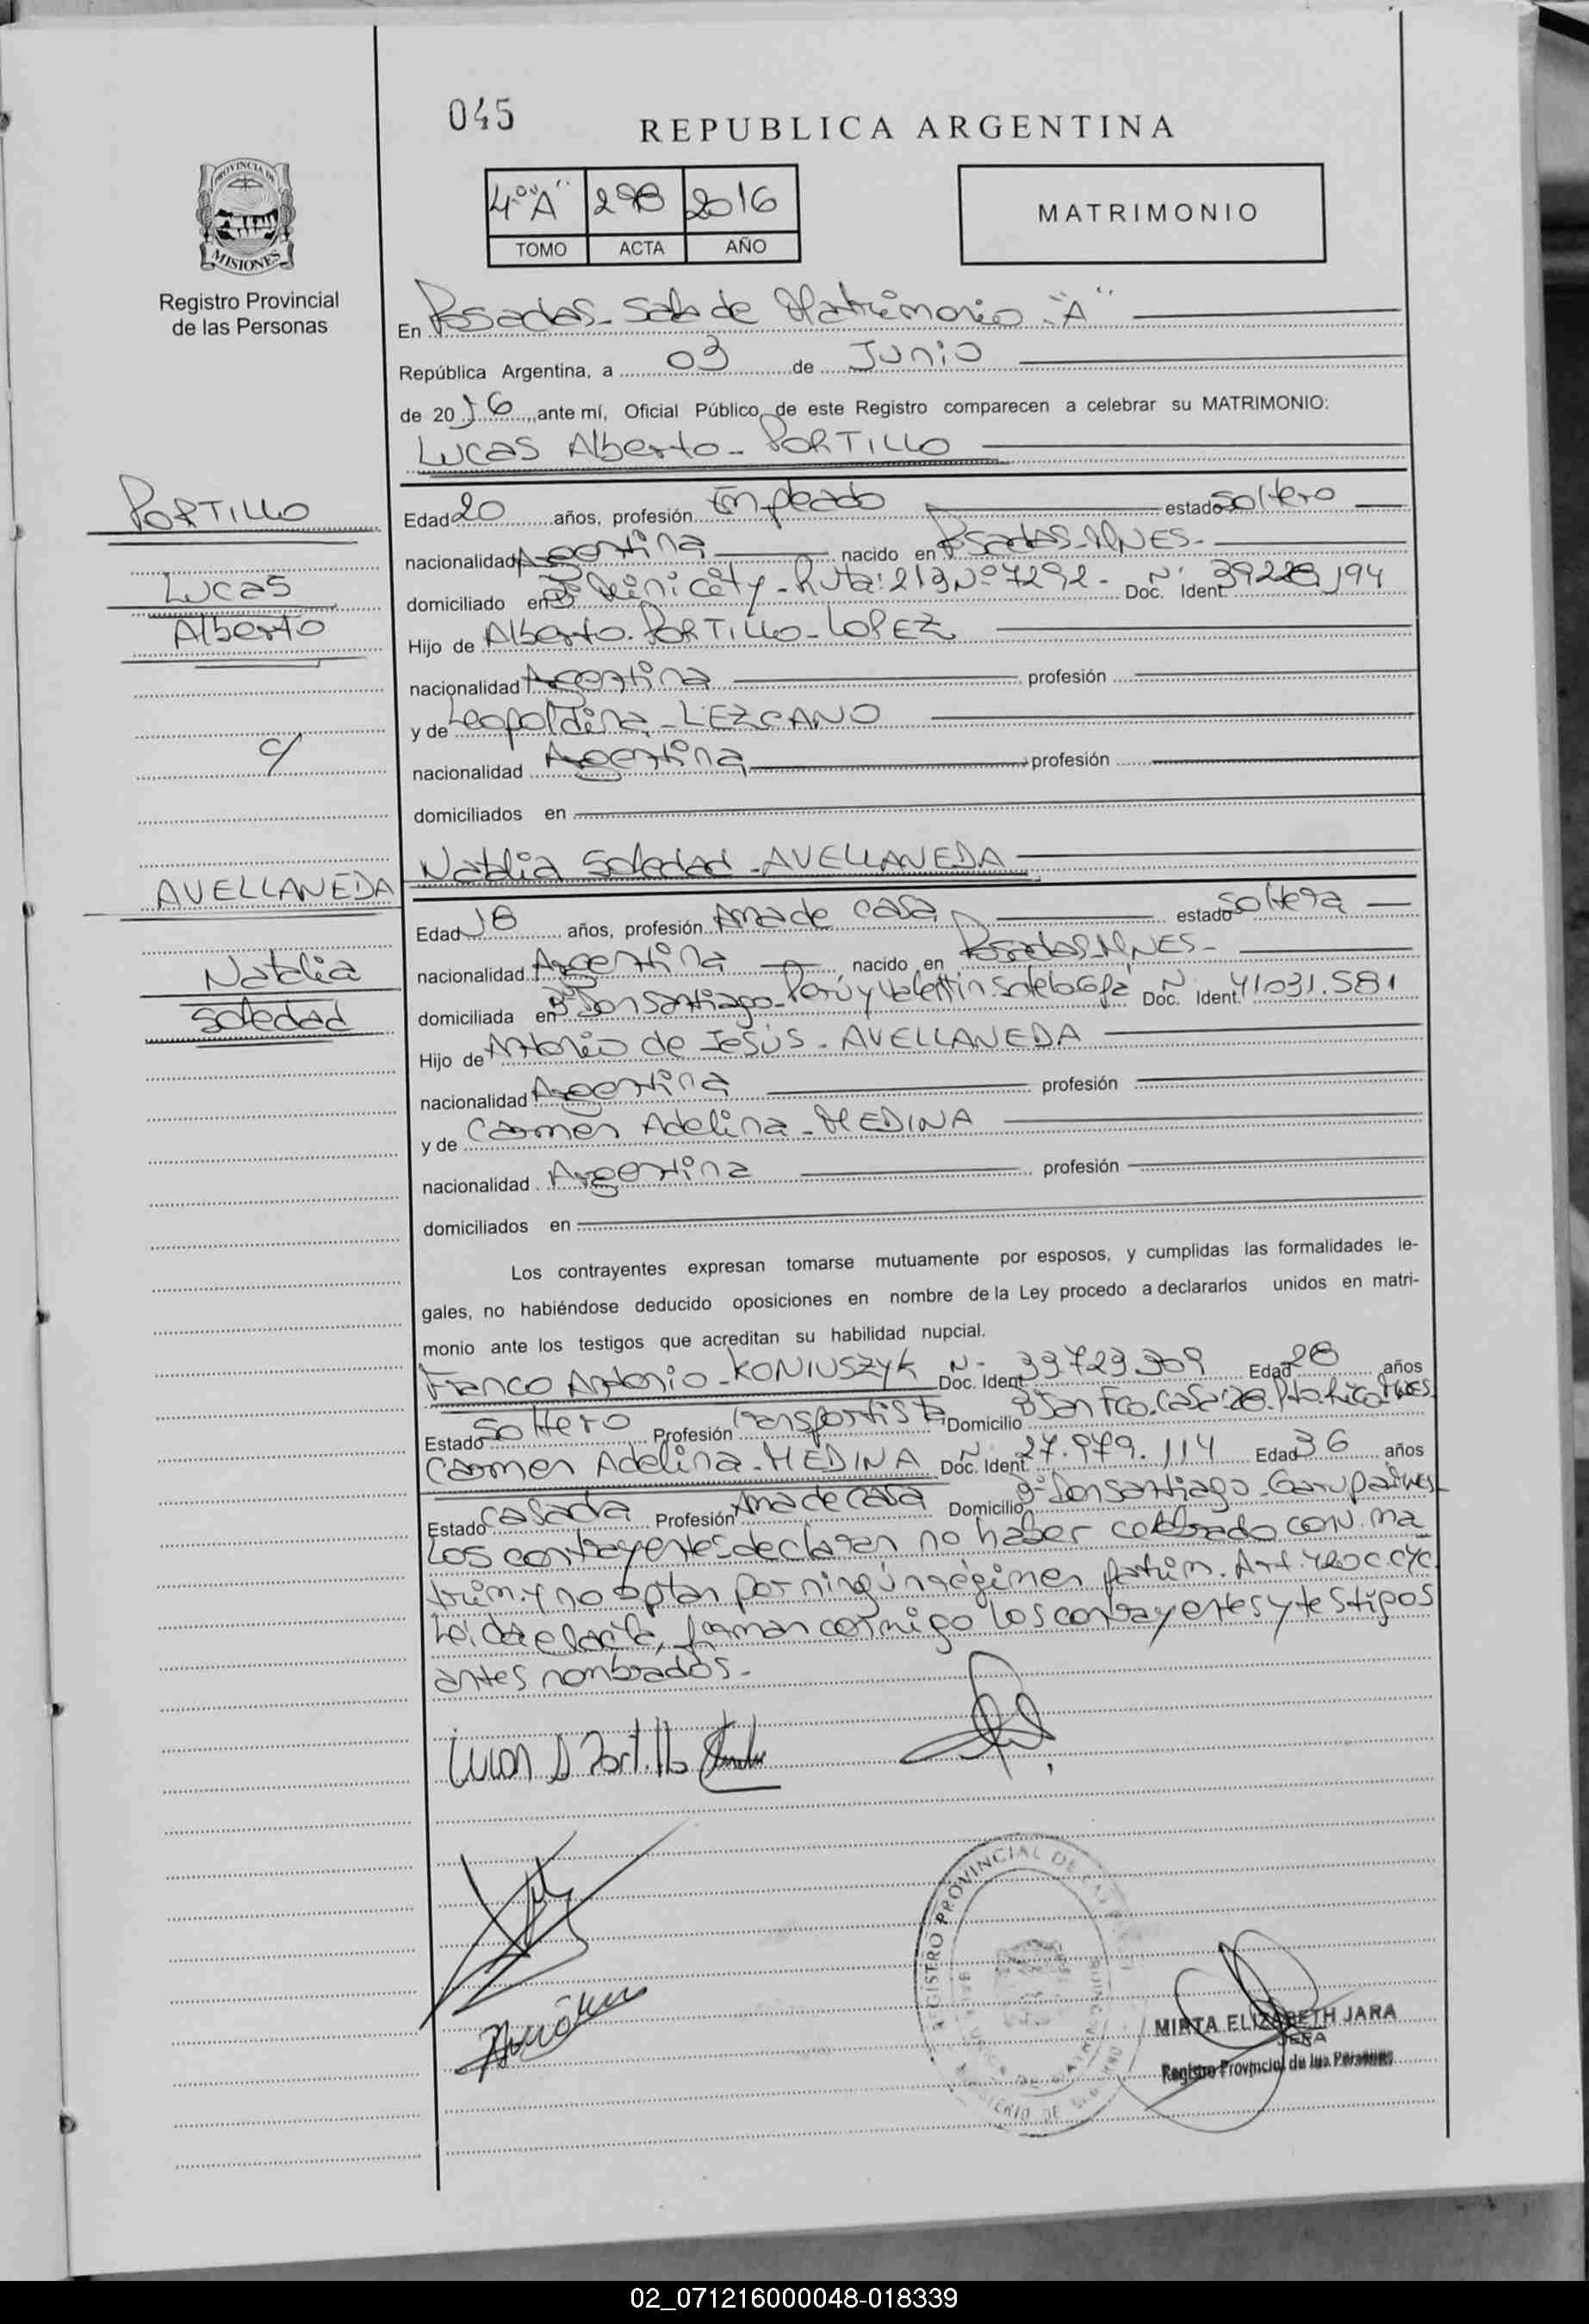 045
REPUBLICA ARGENTINA
PROVINCIA DE
MISIONES
Registro Provincial
de las Personas
4º "A" 298 2016
TOMO ACTA AÑO
MATRIMONIO
En Posadas - Sala de Matrimonio "A"
República Argentina, a 03 de Junio
de 2016, ante mí, Oficial Público de este Registro comparecen a celebrar su MATRIMONIO:
Lucas Alberto - PORTILLO
PORTILLO
Lucas
Alberto
c/
AVELLANEDA
Natalia
Soledad
Edad 20 años, profesión Empleado estado soltero
nacionalidad Argentina nacido en Posadas - MNES -
domiciliado en Bº Ruta: 213 Nº 7292 - Doc. Ident. Nº 39228194
Hijo de Alberto - PORTILLO - LOPEZ
nacionalidad Argentina profesión
y de Leopoldina - LEZCANO
nacionalidad Argentina profesión
domiciliados en
Natalia Soledad - AVELLANEDA
Edad 18 años, profesión Ama de casa estado soltera
nacionalidad Argentina nacido en Posadas - MNES -
domiciliada en Bº Don Santiago - Perú y Valentin Sotelo Gpá Doc. Ident. Nº 41031.581
Hijo de Antonio de Jesús - AVELLANEDA
nacionalidad Argentina profesión
y de Carmen Adelina - MEDINA
nacionalidad Argentina profesión
domiciliados en
Los contrayentes expresan tomarse mutuamente por esposos, y cumplidas las formalidades le-
gales, no habiéndose deducido oposiciones en nombre de la Ley procedo a declararlos unidos en matri-
monio ante los testigos que acreditan su habilidad nupcial.
Franco Antonio - KONIUSZYK Doc. Ident. Nº 33.723.909 Edad 28 años
Estado soltero Profesión transportista Domicilio Bº San Fco. Casa: 28. Pto. Rico Mnes
Carmen Adelina - MEDINA Doc. Ident. Nº 27.979.114 Edad 36 años
Estado casada Profesión Ama de casa Domicilio Bº Don Santiago - Garupá Mnes -
Los contrayentes declaran no haber celebrado conv. ma
trim. y no optan por ningún régimen patrim. Art. 420 C. CYC.
Leída el acta, firman conmigo los contrayentes y testigos
antes nombrados -
Lucas A Portillo
REGISTRO PROVINCIAL DE LAS
MINISTERIO DE
MIRTA ELIZABETH JARA
JEFA
Registro Provincial de las Personas
02_071216000048-018339